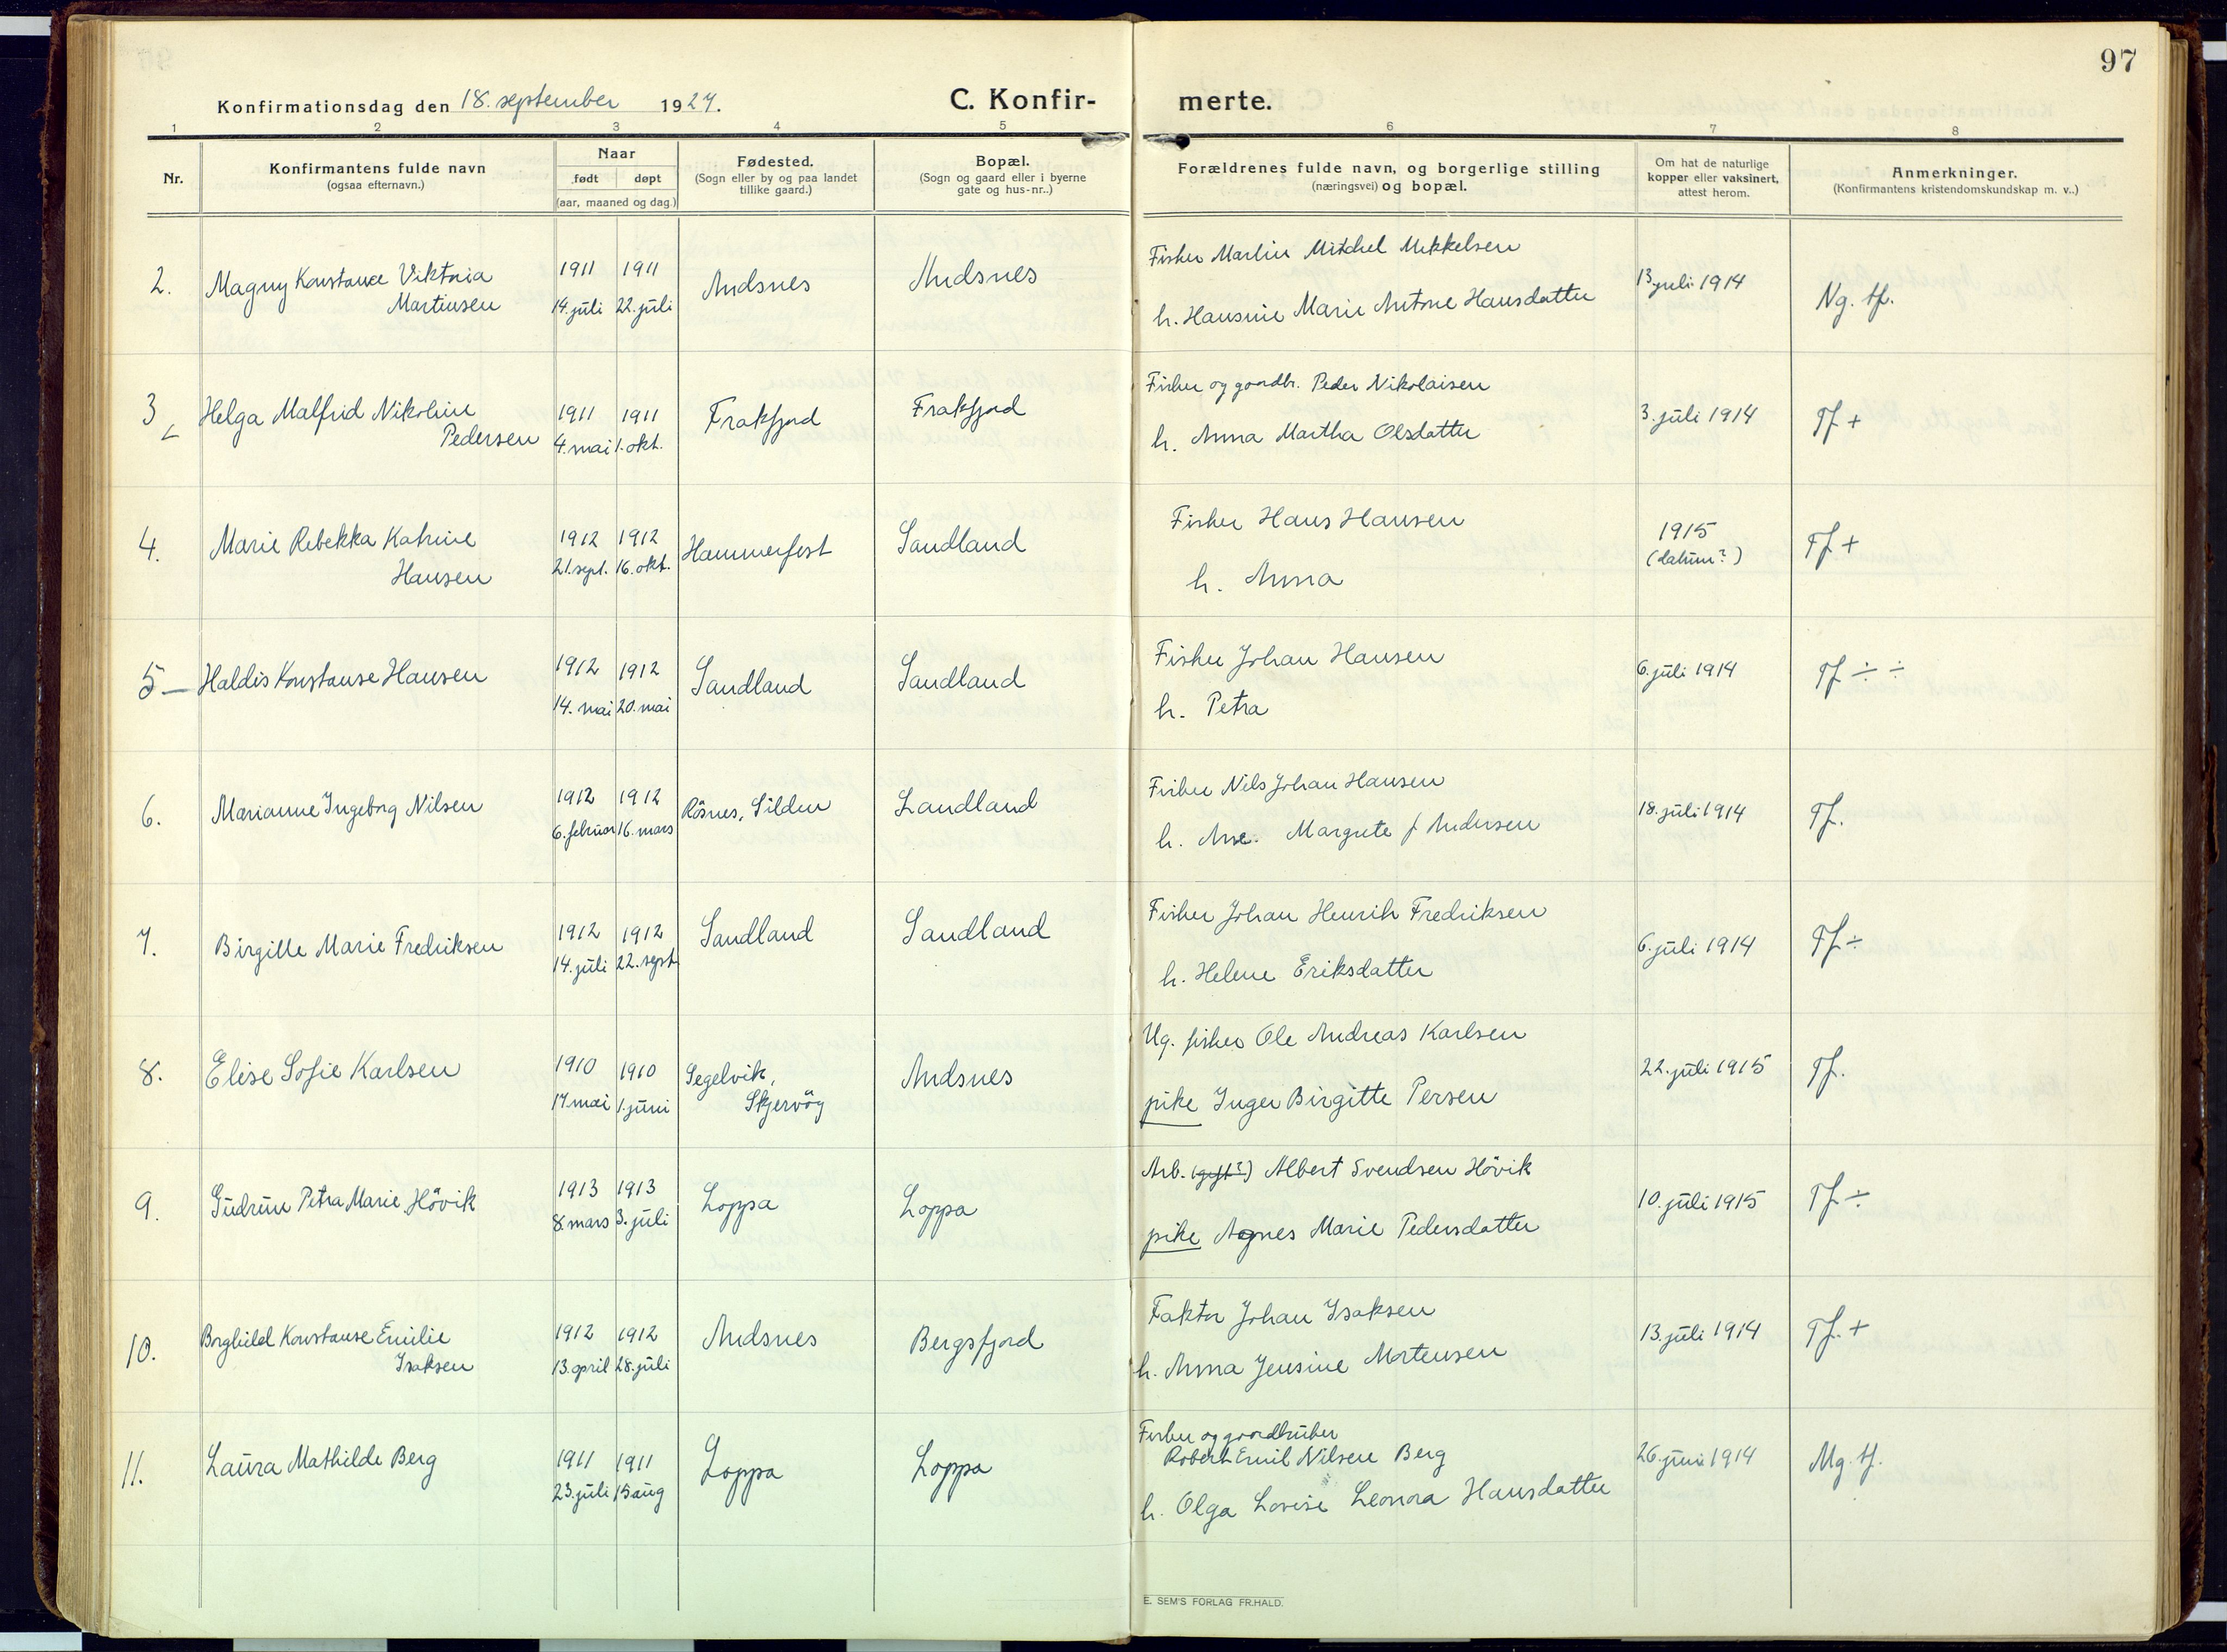 97
Konfirmationsdag den 18. september 1927.
C. Konfir-
merte.
1 2 3 4 5 6 7 8
Nr.
Konfirmantens fulde navn
(ogsaa efternavn.)
Naar
født døpt
(aar, maaned og dag.)
Fødested.
(Sogn eller by og paa landet
tillike gaard.)
Bopæl.
(Sogn og gaard eller i byerne
gate og hus-nr..)
Forældrenes fulde navn, og borgerlige stilling
(næringsvei) og bopæl.
Om hat de naturlige
kopper eller vaksinert,
attest herom.
Anmerkninger.
(Konfirmantens kristendomskundskap m. v..)
2. Magny Konstance Viktoria
Martinsen
1911 1911
14. juli 22. juli
Andsnes
Andsnes
Fisker Martin Mitchel Mikkelsen
h. Hansine Marie Antone Hansdatter
13 juli 1914
Ng. tf.
3 Helga Malfrid Nikoline
Pedersen
1911 1911
4. mai 1. okt.
Frakfjord
Frakfjord
Fisker og gaardbr. Peder Nikolaisen
h. Anna Martha Olsdatter
3. juli 1914
Tf +
4. Marie Rebekka Katrine
Hansen
1912 1912
21. sept. 16. okt.
Hammerfest
Sandland
Fisker Hans Hansen
h. Anna
1915
(datum?)
Tf +
5 Haldis Konstanse Hansen
1912 1912
14. mai 20. mai
Sandland
Sandland
Fisker Johan Hansen
h. Petra
6. juli 1914
Tf ÷ ÷
6. Marianne Ingeborg Nilsen
1912 1912
6. februar 16. mars
Røsnes, Silden
Sandland
Fisker Nils Johan Hansen
h. Ane Margrete f Andersen
18. juli 1914
Tf.
7. Birgitte Marie Fredriksen
1912 1912
14. juli 22. sept.
Sandland
Sandland
Fisker Johan Henrik Fredriksen
h. Helene Eriksdatter
6. juli 1914
Tf ÷
8. Elise Sofie Karlsen
1910 1910
17. mai 1. juni
Segelvik,
Skjervöy
Andsnes
Ug. fisker Ole Andreas Karlsen
pike Inger Birgitte Persen
22. juli 1915
Tf.
9. Gudrun Petra Marie Hövik
1913 1913
8. mars 3. juli
Loppa
Loppa
Arb. (gift?) Albert Svendsen Hövik
pike Agnes Marie Pedersdatter
10. juli 1915
Tf ÷
10. Borghild Konstanse Emilie
Isaksen
1912 1912
13. april 28. juli
Andsnes
Bergsfjord
Faktor Johan Isaksen
h. Anna Jensine Mortensen
13. juli 1914
Tf. +
11. Laura Mathilde Berg
1911 1911
23. juli 15 aug
Loppa
Loppa
Fisker og gaardbruker
Robert Emil Nilsen Berg
h. Olga Lovise Leonora Hansdatter
26. juni 1914
Mg. tf.
E. SEM'S FORLAG FR.HALD.